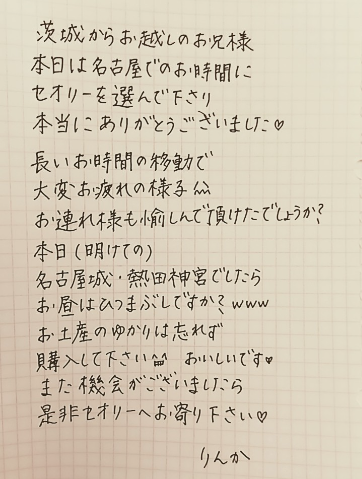 茨城からお越しのお兄様
本日は名古屋でのお時間に
セオリーを選んで下さり
本当にありがとうございました♡
長いお時間の移動で
大変お疲れの様子^^
お連れ様も愉しんで頂けたでしょうか?
本日(明けての)
名古屋城・熱田神宮でしたら
お昼はひつまぶしですか?www
お土産のゆかりは忘れず
購入して下さい^^ おいしいです♥
また機会がございましたら
是非セオリーへお寄り下さい♡
りんか